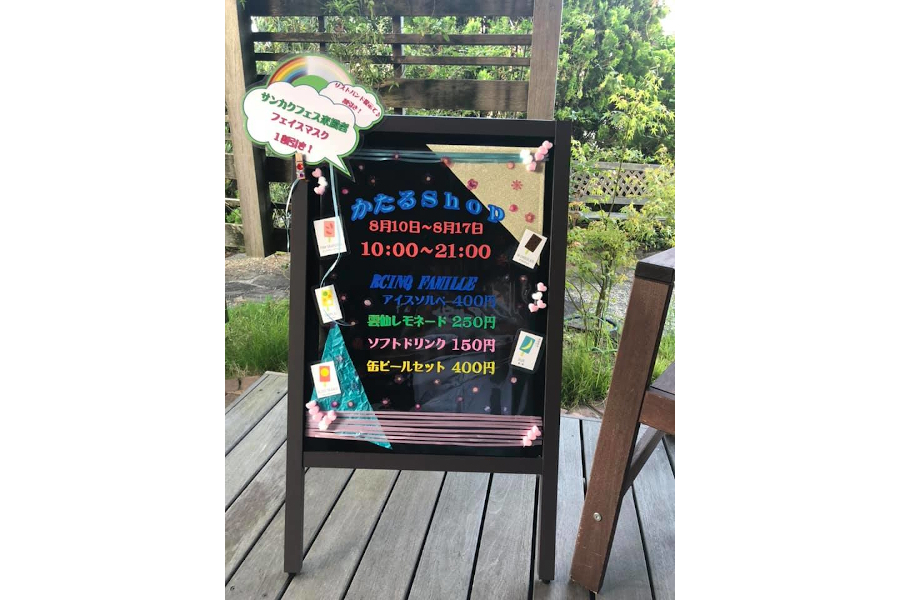 リストバンド
サンカクフェス来場者
フェイスマスク
1割引き!
かたるShop
8月10日〜8月17日
10:00〜21:00
RCINQ FAMILLE
アイスソルベ 400円
雲仙レモネード 250円
ソフトドリンク 150円
缶ビールセット 400円